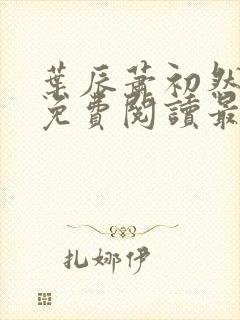 葉辰蕭初然
免費閱讀最
扎娜伊